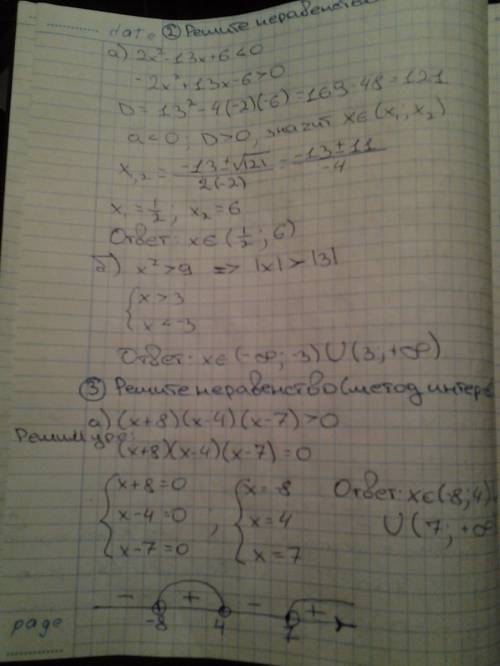 date ② Решите неравенство
а) 2x²-13x+6<0
-2x²+13x-6>0
D=13²-4(-2)(-6)=169-48=121
a<0; D>0, значит x∈(x₁; x₂)
x₁,₂ = (-13±√121)/(2(-2)) = (-13±11)/(-4)
x₁=1/2; x₂=6
Ответ: x∈(1/2; 6)
б) x²>9 => |x|>|3|
{ x>3
x<-3
Ответ: x∈(-∞; -3)∪(3; +∞)
③ Решите неравенство (метод интер
а) (x+8)(x-4)(x-7)>0
Решим ур:
(x+8)(x-4)(x-7)=0
{ x+8=0 ; { x=-8 Ответ: x∈(-8; 4)
x-4=0 x=4 ∪(7; +∞
x-7=0 x=7
- + - +
-8 4 7
page